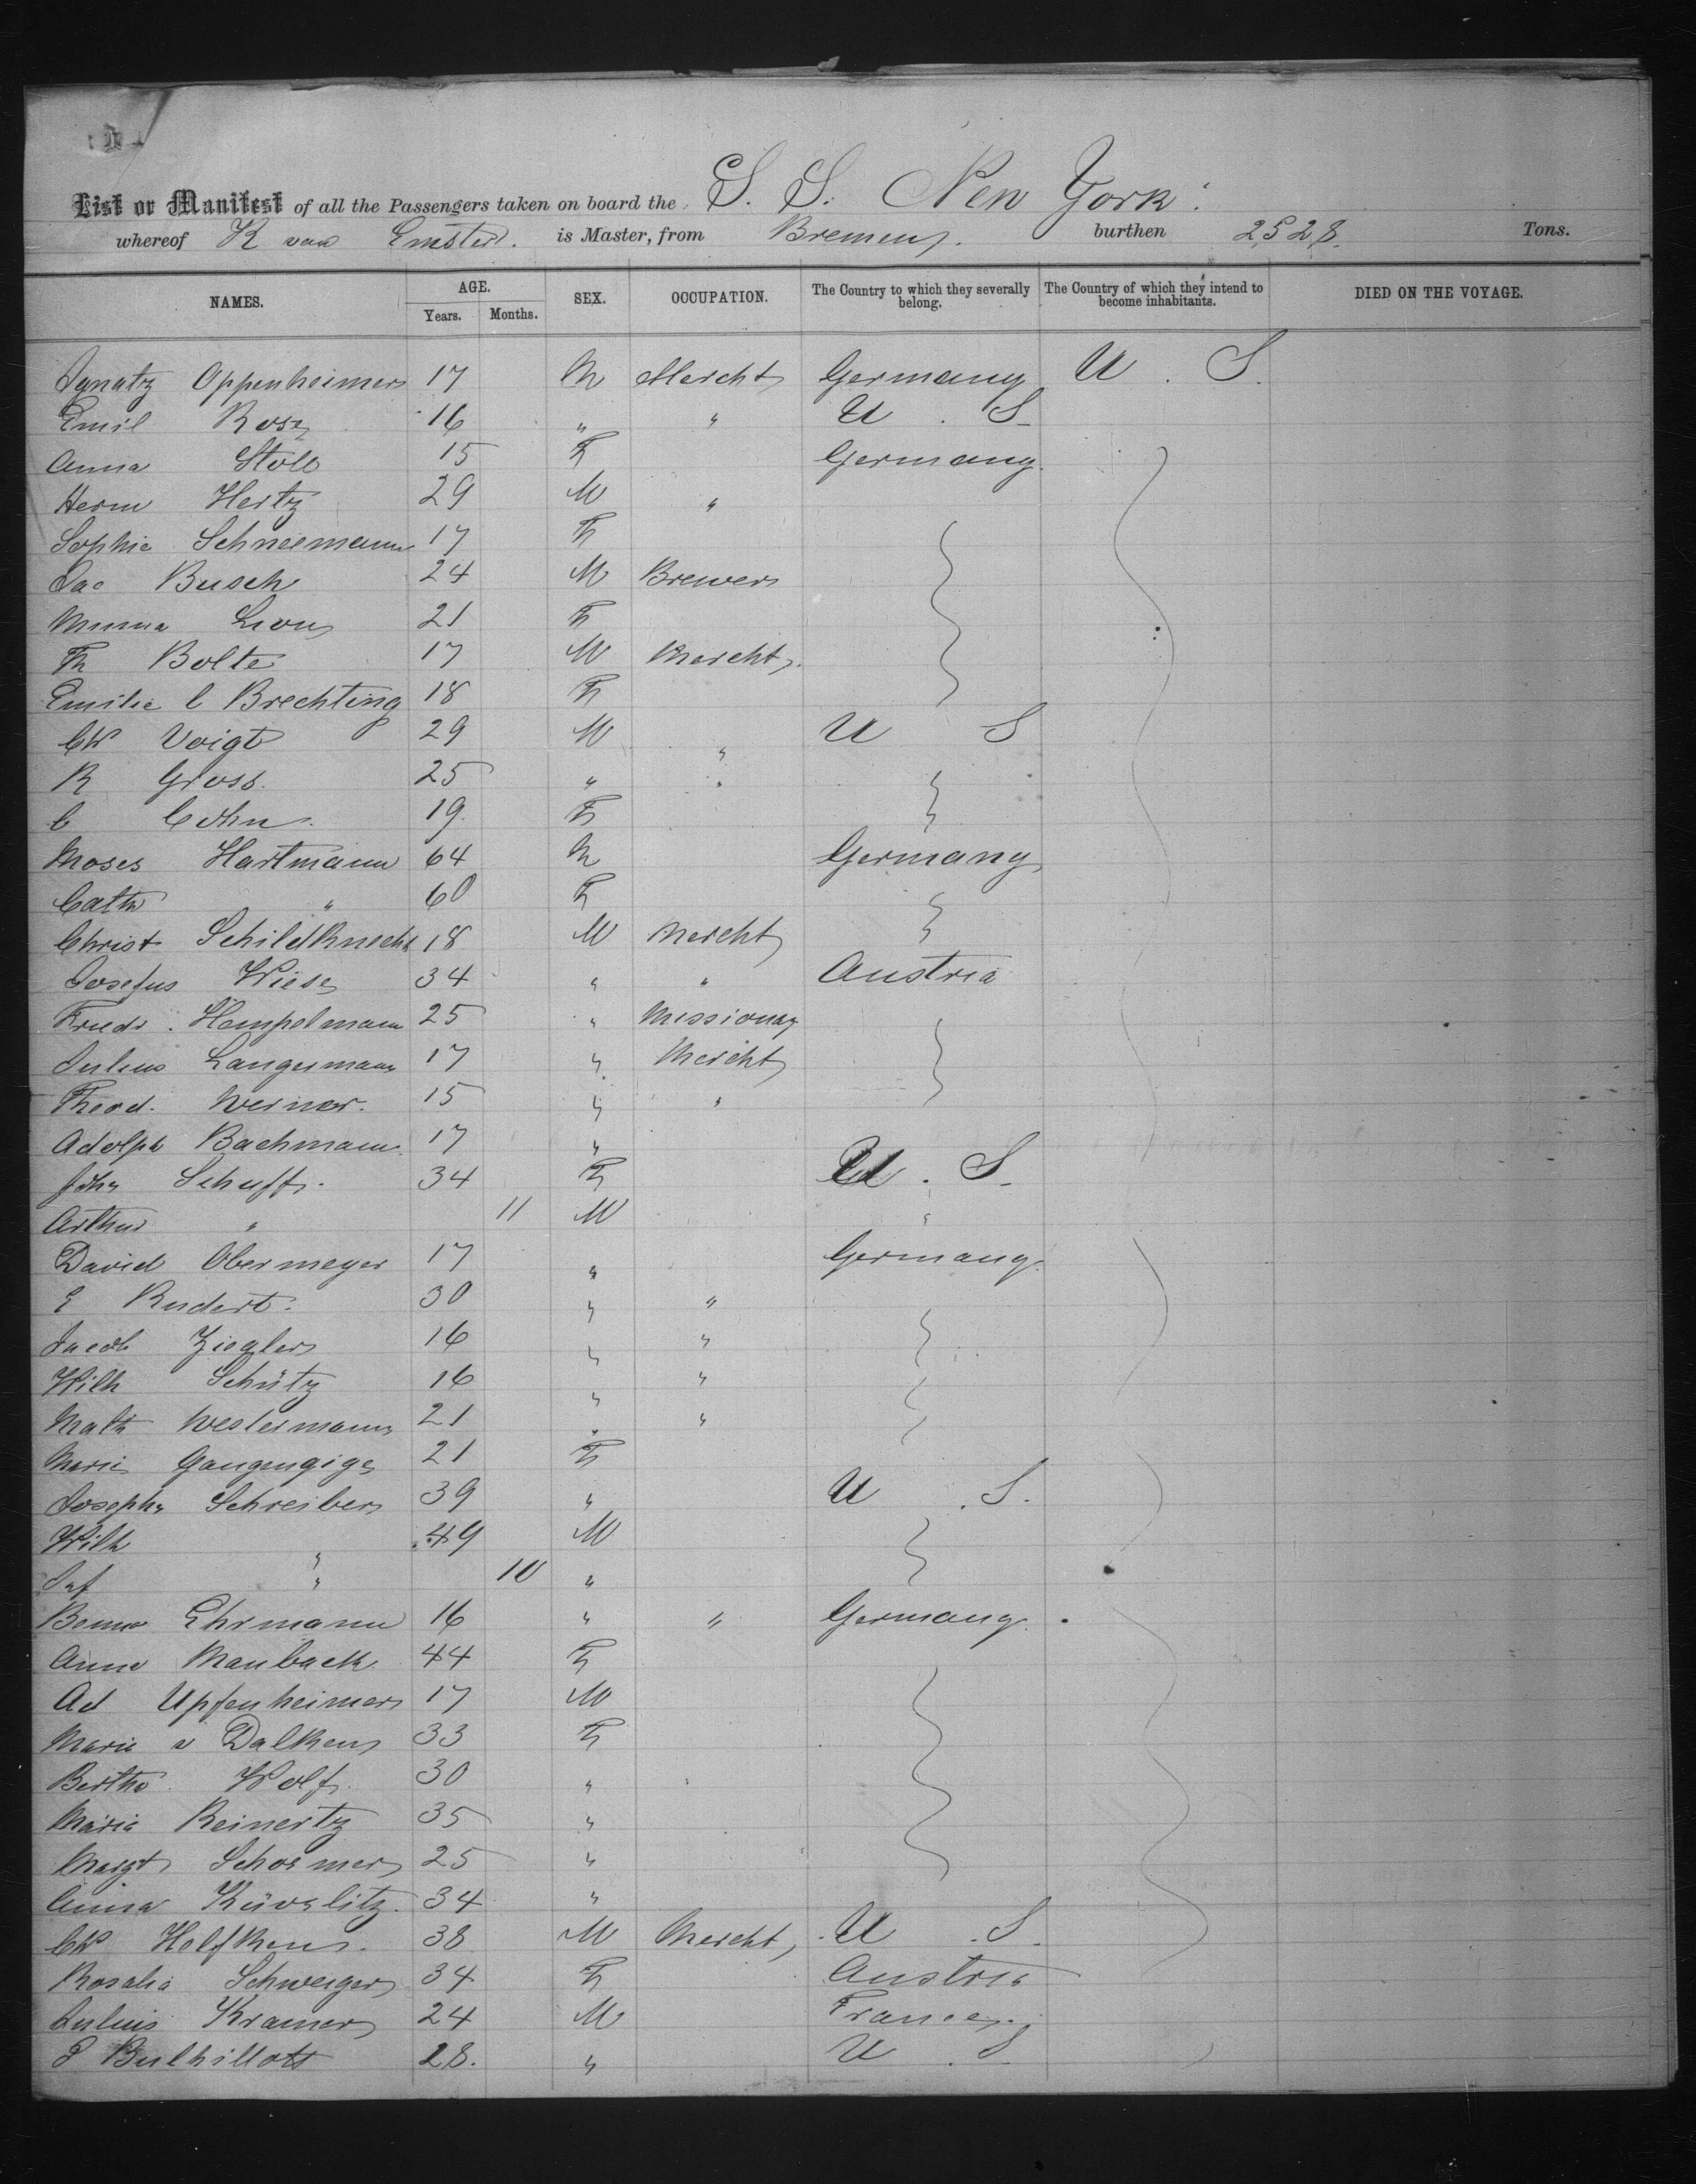 List or Manifest of all the Passengers taken on board the S. S. New York
whereof K van Emster. is Master, from Bremen. burthen 2528 Tons.
NAMES. AGE. SEX. OCCUPATION. The Country to which they severally belong. The Country of which they intend to become inhabitants. DIED ON THE VOYAGE.
Years. Months.
Ignatz Oppenheimer 17 M Mercht Germany U. S.
Emil Rosz 16 " " U. S.
Anna Stoll 15 F Germany.
Herm Hertz 29 M "
Sophie Schneemann 17 F
Jac Busch 24 M Brewer
Minna Leon 21 F
Th Bolte 17 M Mercht.
Emilie C Brechting 18 F
CW Voigt 29 M " U S
R Gross. 25 " "
C Cohn. 19. F
Moses Hartmann 64 M Germany
Cath " 60 F
Christ Schildknecht 18 M Mercht
Josefus Wiese 34 " " Austria
Friedr. Hempelmann 25 " Missionay
Julius Langermann 17 " Mercht
Theod. Werner. 15 " "
Adolph Bachmann. 17 "
Joh Schuff. 34 F U. S.
Arthur " 11 M "
David Obermeyer 17 " Germany.
E Rudert. 30 " "
Jacob Ziegler 16 " "
Wilh Schütz 16 " "
Math Westermann 21 " "
Marie Gangengige 21 F
Josepha Schreiber 39 " U. S.
Wilh " 49 M
Inf " 10 "
Benno Ehrmann 16 " " Germany.
Anna Maubach 44 F
Ad Upfenheimer 17 M
Marie v Dalken 33 F
Bertha Wolf. 30 "
Maria Reinertz 35 "
Margt Schoemer 25 "
Anna 34 "
CW Holfken. 38 M Mercht, U. S.
Rosalia Schweiger 34 F Austria
Julius Kramer 24 M France.
28. " U. S.